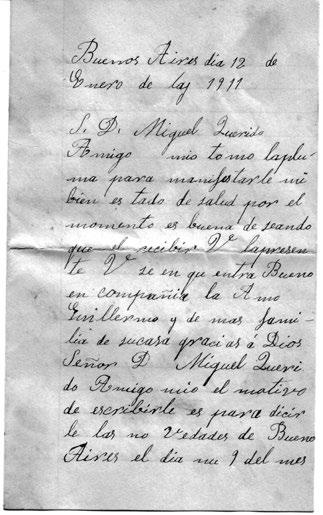 Buenos Aires dia 12 de
Enero de laj 1911
S. D. Miguel Querido
Amigo mio tomo laplu
ma para manifestarle mi
bien es tado de salud por el
momento es buena de seando
que el recibir V lapresen
te V se en qu entra Bueno
en compañia la Amo
Guillermo y de mas fami
lia de sucasa gracias á Dios
Señor D Miguel Queri
do Amigo mio el motivo
de escribirle es para dicir
le las no vedades de Bueno
Aires el dia nu 9 del mes